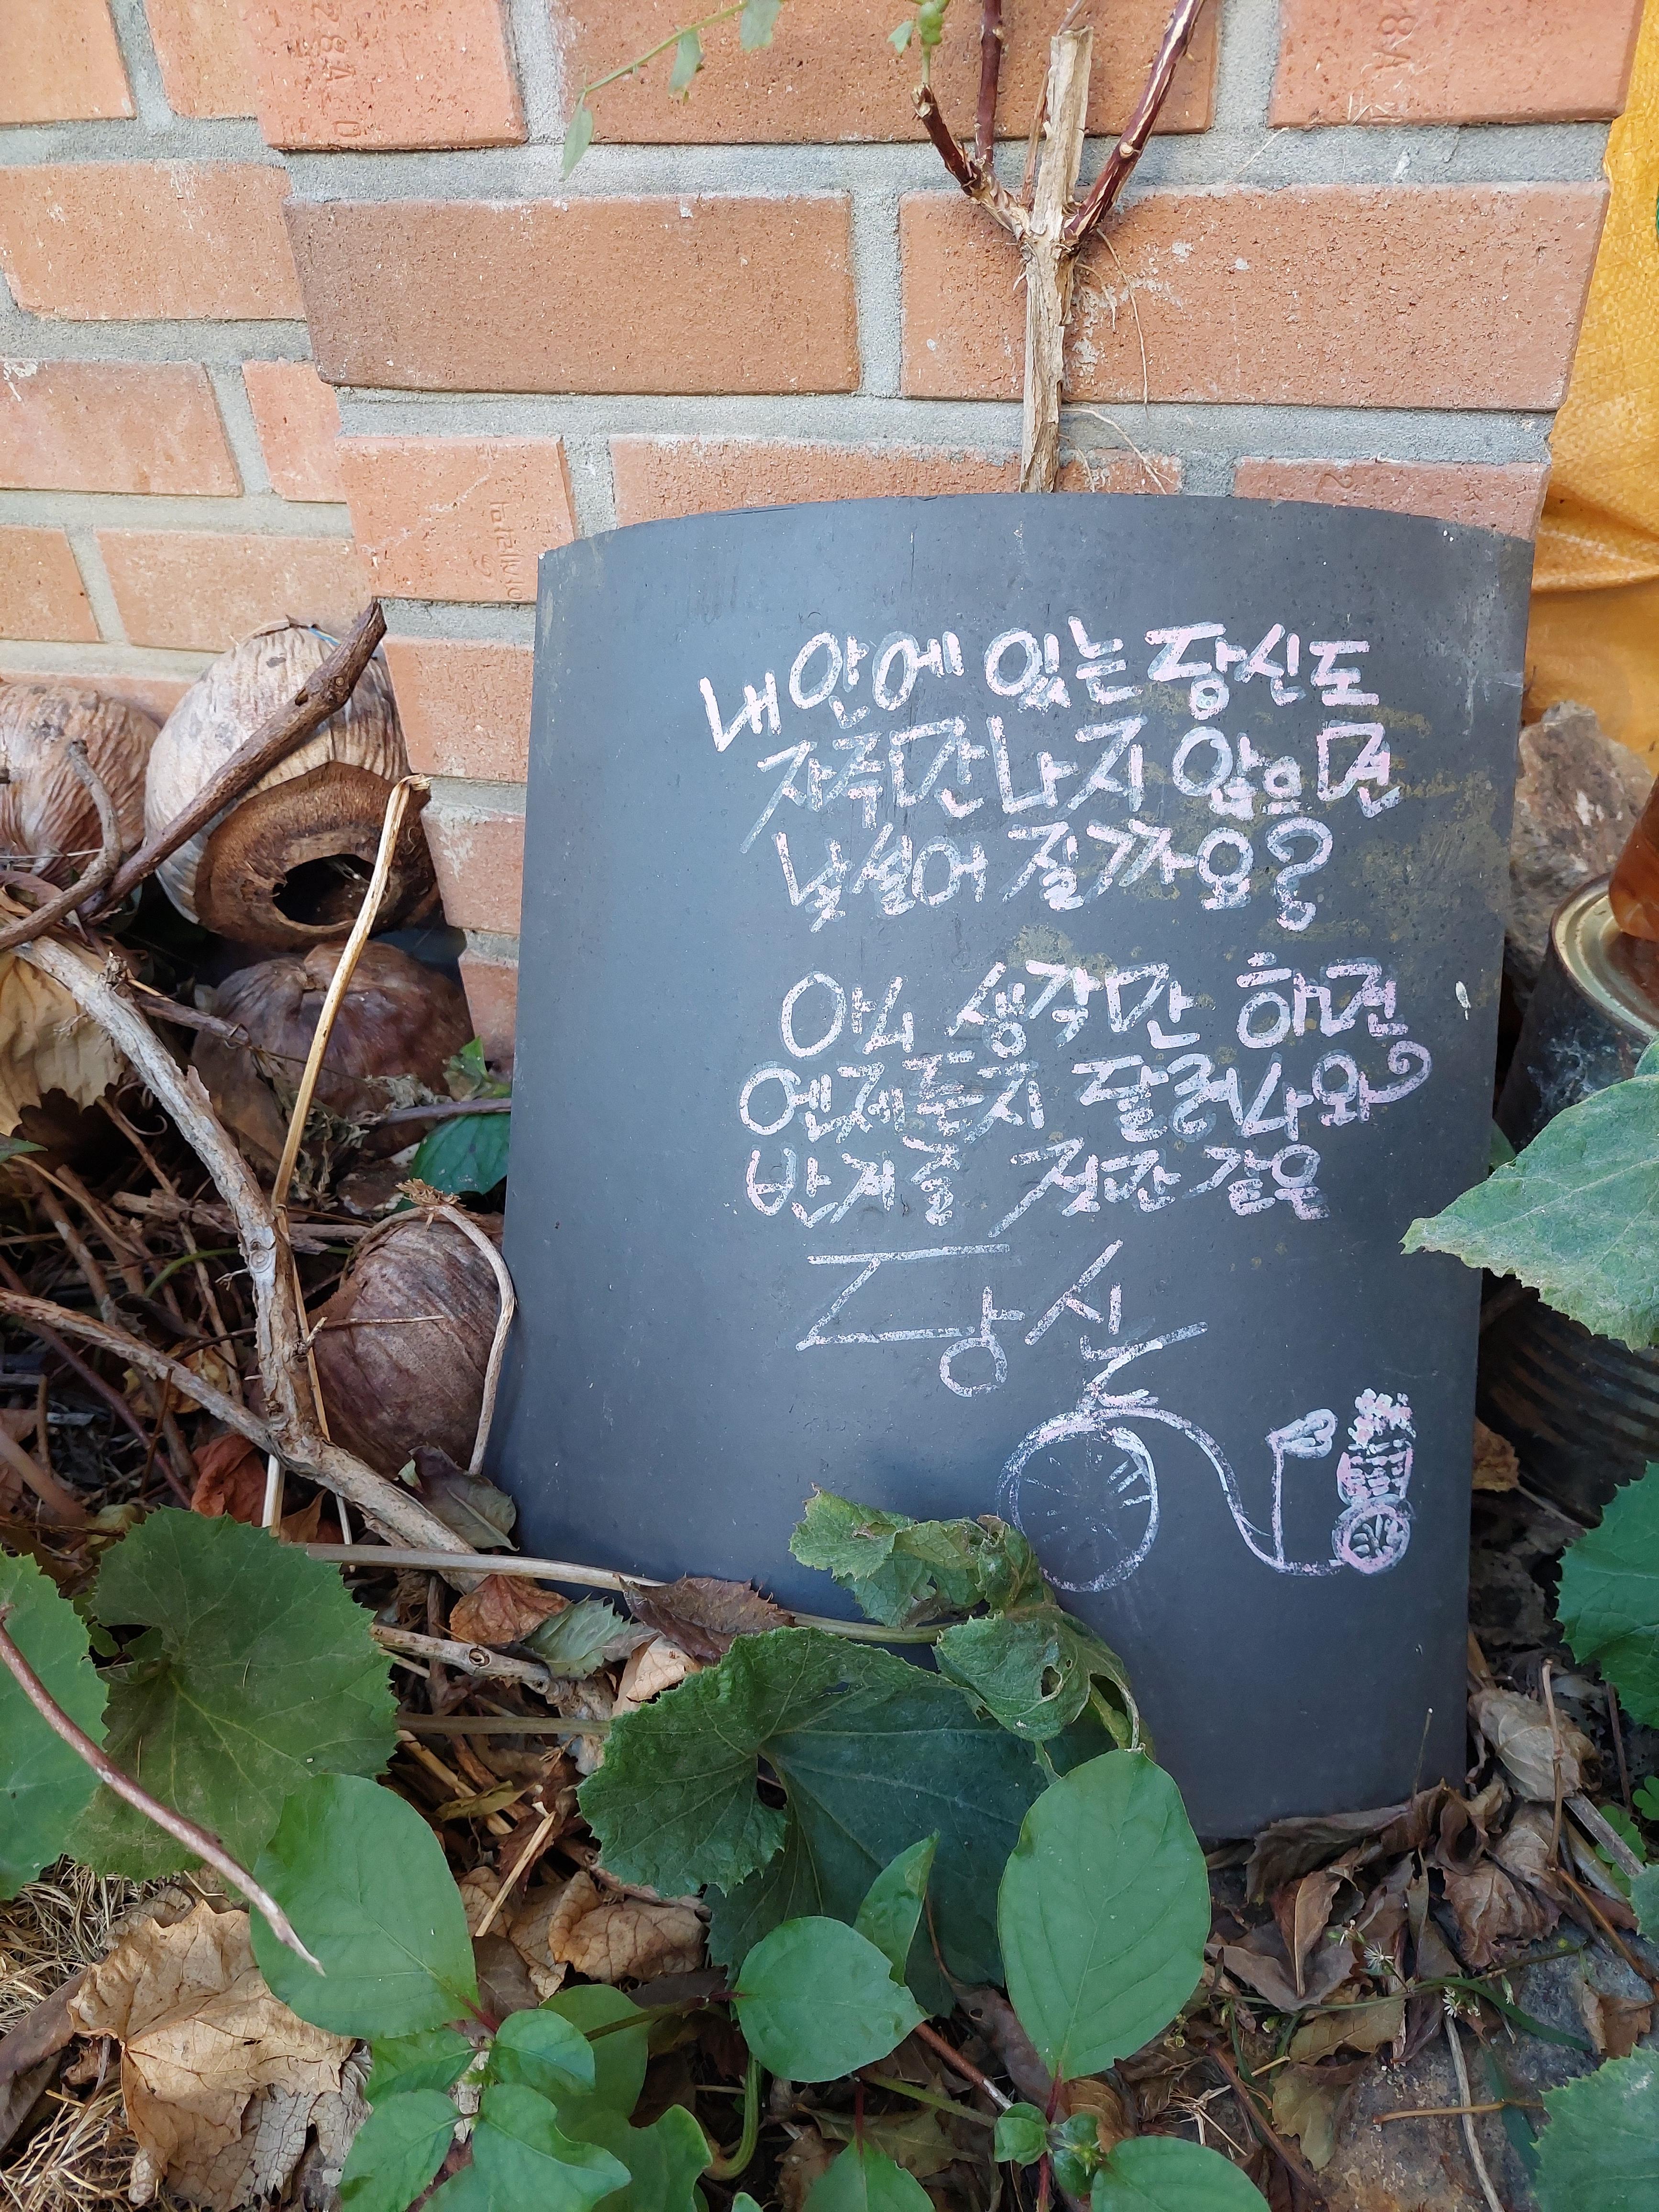 내 안에 있는 당신도
자주 만나지 않으면
낯설어 질까요?
아니 생각만 하면
언제든지 달려나와
반겨줄 것만 같은
당신